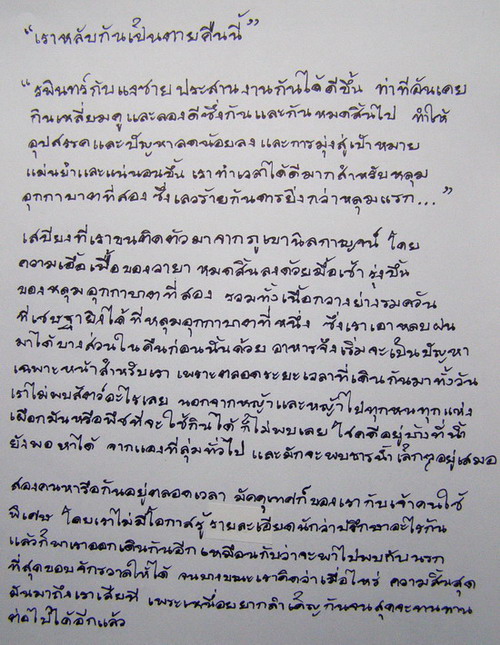 “เราหลับกันเป็นตายคืนนี้”
“รพินทร์กับแงซายประสานงานกันได้ดีขึ้น ท่าทีอันเคย
กินเหลี่ยมดูและลองดีซึ่งกันและกันหมดสิ้นไป ทำให้
อุปสรรคและปัญหาลดน้อยลง และการมุ่งสู่เป้าหมาย
แม่นยำและแน่นอนขึ้น เราทำเวลาได้ดีมากสำหรับหลุม
อุกกาบาตที่สอง ซึ่งเลวร้ายกันดารยิ่งกว่าหลุมแรก...”
เสบียงที่เราขนติดตัวมาจากภูเขานิลกาญจน์ โดย
ความเอื้อเฟื้อของวายา หมดสิ้นลงด้วยมื้อเช้า รุ่งขึ้น
ของหลุมอุกกาบาตที่สอง รวมทั้งเนื้อกวางย่างรมควัน
ที่เชษฐายิงได้ที่หลุมอุกกาบาตที่หนึ่ง ซึ่งเราเอาหลบฝน
มาได้บางส่วนในคืนก่อนนั้นด้วย อาหารจึงเริ่มจะเป็นปัญหา
เฉพาะหน้าสำหรับเรา เพราะตลอดระยะเวลาที่เดินกันมาทั้งวัน
เราไม่พบสัตว์อะไรเลย นอกจากหญ้าและหญ้าไปทุกหนทุกแห่ง
เผือกมันหรือพืชที่จะใช้กินได้ ก็ไม่พบเลย โชคดีอยู่บ้างที่น้ำ
ยังพอหาได้ จากแอ่งที่ลุ่มทั่วไป และมักจะพบธารน้ำเล็กๆอยู่เสมอ
สองคนหารือกันอยู่ตลอดเวลา มัคคุเทศก์ของเรากับเจ้าคนใช้
พิเศษ โดยเราไม่มีโอกาสรู้รายละเอียดนักว่าปรึกษาอะไรกัน
แล้วก็พาเราออกเดินกันอีก เหมือนกับว่าจะพาไปพบกับนรก
ที่สุดขอบจักรวาลให้ได้ จนบางขณะเราคิดว่าเมื่อไหร่ ความสิ้นสุด
มันมาถึงเราเสียที เพราะเหนื่อยยากลำเค็ญกันจนสุดจะทนทาน
ต่อไปได้อีกแล้ว